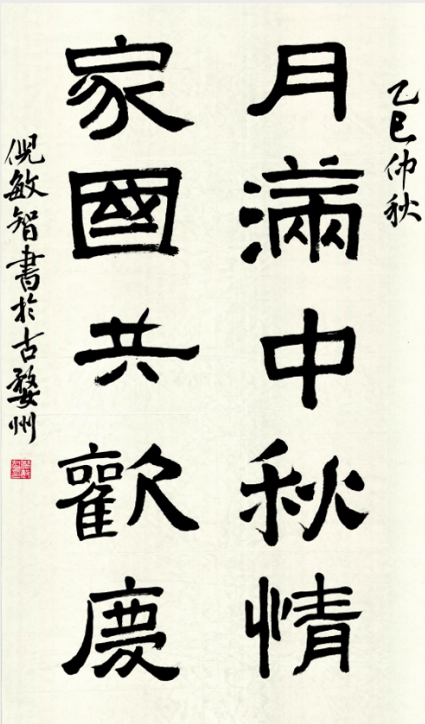 乙巳仲秋
月滿中秋情
家國共歡慶
倪敏智書於古婺州